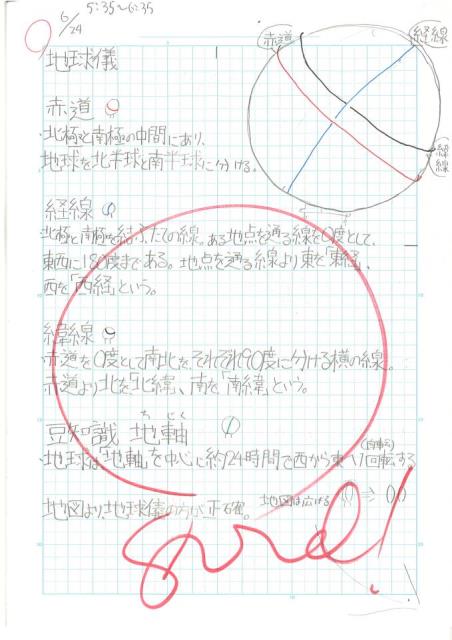 6/24
5:35~6:35
地球儀
赤道
経線
緯線
赤道
・北極と南極の中間にあり、
地球を北半球と南半球に分ける。
経線
北極と南極を結ぶたての線。ある地点を通る線を0度として、
東西に180度まである。地点を通る線より東を「東経」、
西を「西経」という。
緯線
・赤道を0度として南北を、それぞれ90度に分ける横の線。
赤道より北を「北緯」、南を「南緯」という。
豆知識 地軸
ちじく
・地球は「地軸」を中心に約24時間で西から東へ1回転する
(自転)
地図より、地球儀の方が正確。
地図は広げる
Good!